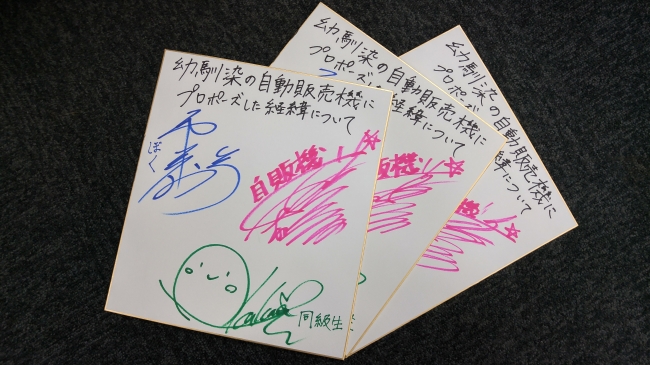 幼馴染の自動販売機に
プロポーズした経緯について
ぼく
自販機
同級生
幼馴染の自動販売機に
プロポーズした経緯について
自販機
幼馴染の自動販売機に
プロポーズ
経緯について